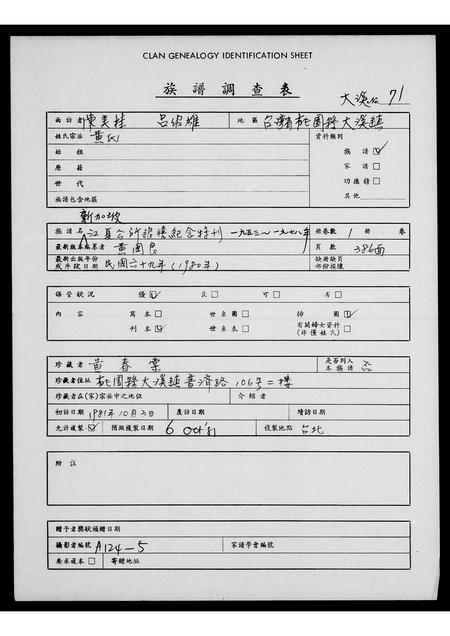 CLAN GENEALOGY IDENTIFICATION SHEET
族譜調查表
大溪 71
面訪者 呂紹雄 地區 台灣桃園縣大溪鎮
姓氏宗派 黃氏 資料類別
始祖 族譜 ☑
原籍 家譜 □
世代 功德榜 □
族譜包含地區 其他
新加坡
族譜名 江夏合所 紀念特刊 一九五三~一九七八年 冊卷數 1 冊 卷
最新版本編纂者 黃國良 頁數 386面
最新出版年份或手改日期 民國六十九年(1980年) 缺冊缺頁部份損壞
保管狀況 優 ☑ 良 □ 可 □ 劣 □
內容 寫本 □ 世系圖 □ 掃圖 ☑
刊本 ☑ 世系表 □ 有關婦女資料(非僅姓氏) □
珍藏者 黃春棠 是否列入本族譜 否
珍藏者住址 桃園縣大溪鎮普濟路106号二樓
珍藏者在(家)宗族中之地位 介紹者
初訪日期 1981年10月3日 覆訪日期 續訪日期
允許複製 ☑ 預擬複製日期 6 Oct '81 複製地點 台北
附註
贈予者獎狀頒贈日期
攝影者編號 A124-5 家譜學會編號
要求複本 □ 寄贈地址